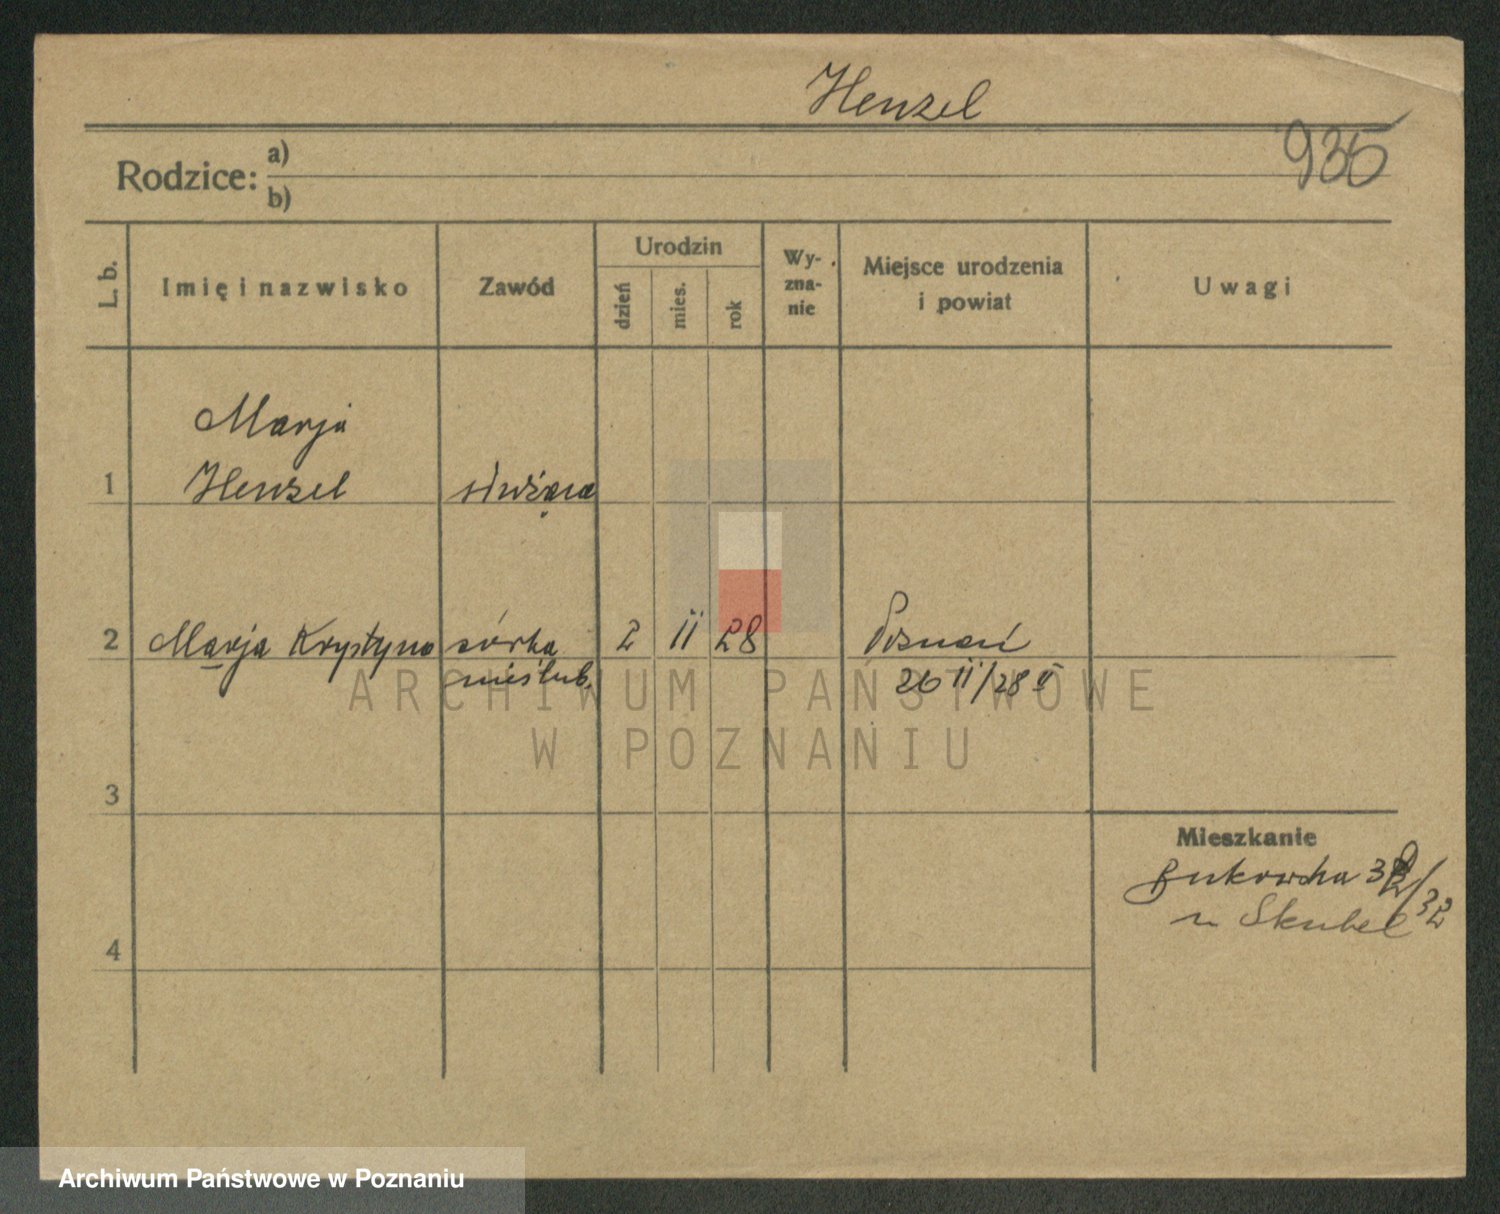 Henzel
935
Rodzice: a)
b)
L. b.
Imię i nazwisko
Zawód
Urodzin
dzień
mies.
rok
Wy-
zna-
nie
Miejsce urodzenia
i powiat
Uwagi
Marja
1 Henzel służąca
2 Marja Krystyna córka 2 II 28 Poznań
nieślub. 26 II/28
ARCHIWUM PAŃSTWOWE
W POZNANIU
3
Mieszkanie
Bukowska
/32
Skubel
4
Archiwum Państwowe w Poznaniu